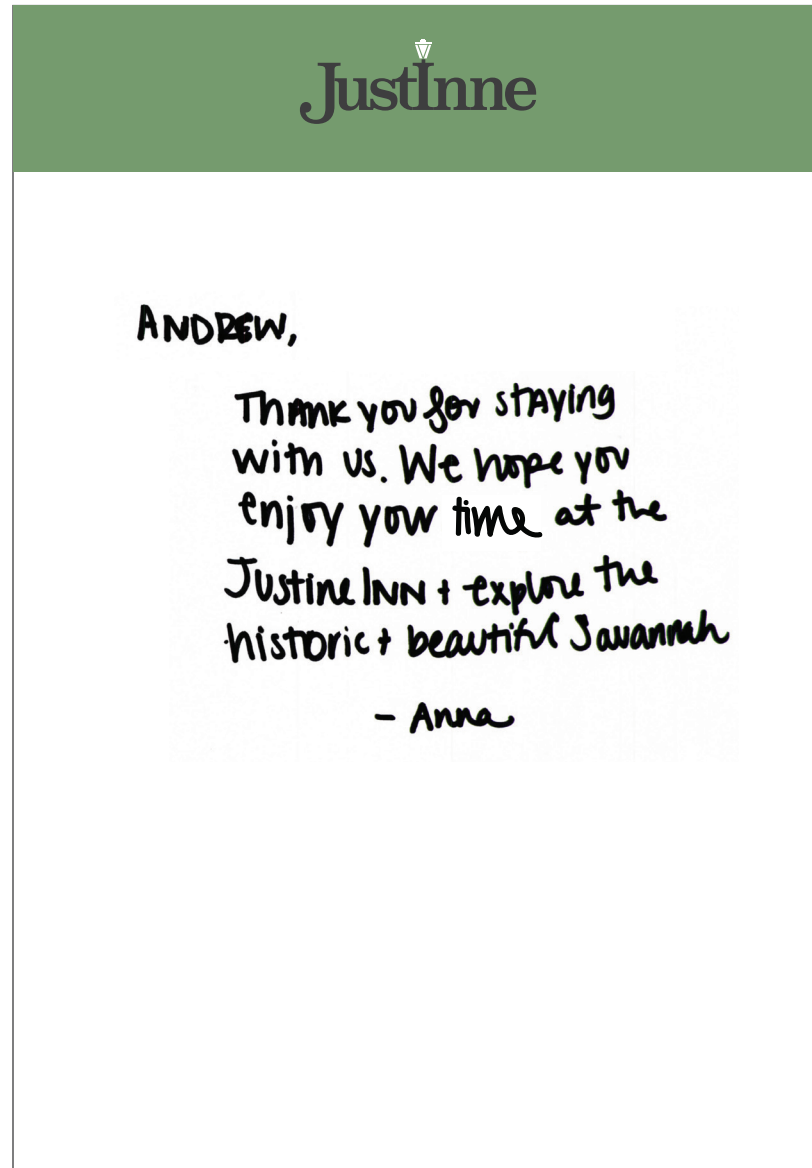 JustInne
ANDREW,
Thank you for staying
with us. We hope you
enjoy your time at the
Justine INN + explore the
historic + beautiful Savannah
- Anna